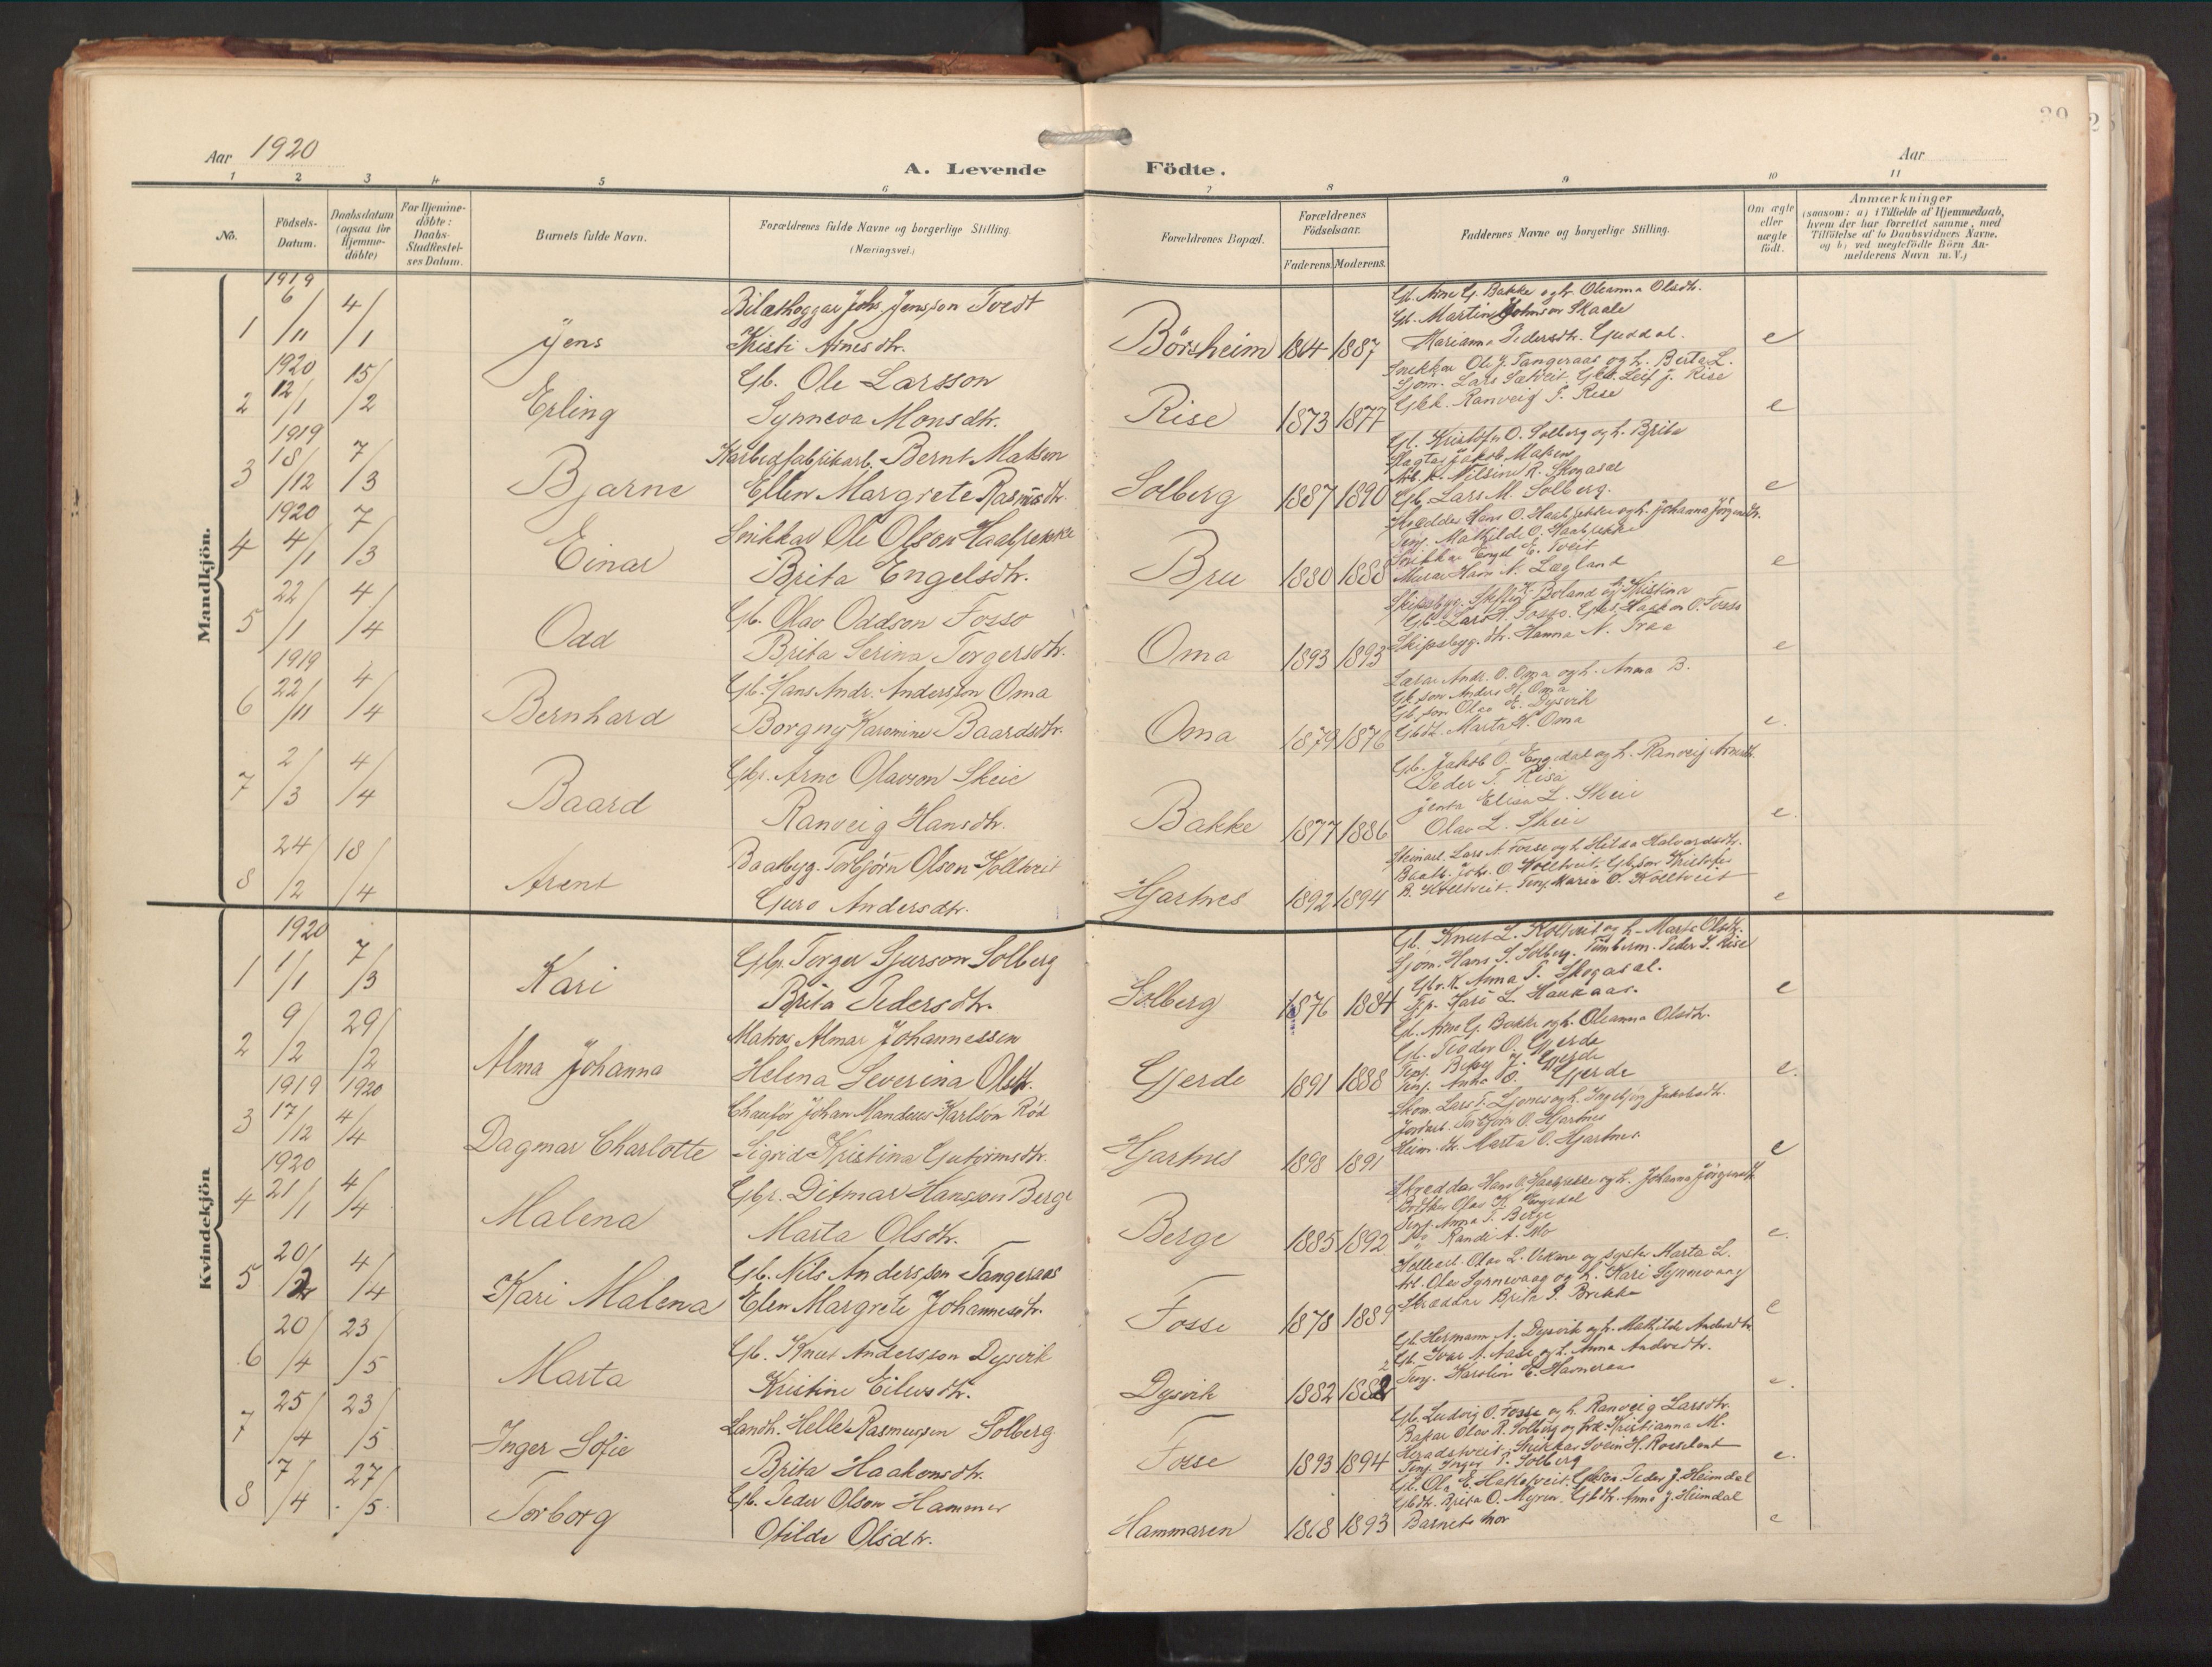 Aar 1920
A. Levende Födte.
Aar
1 2 3 4 5 6 7 8 9 10 11
No.
Födsels-Datum.
Daabsdatum (ogsaa for Hjemmedöbte)
For Hjemmedöbte: Daabs-Stadfæstelses Datum.
Barnets fulde Navn.
Forældrenes fulde Navne og borgerlige Stilling.
(Næringsvei.)
Forældrenes Bopæl.
Forældrenes Födselsaar.
Faderens. Moderens.
Faddernes Navne og borgerlige Stilling.
Om ægte eller uægte födt.
Anmærkninger
(saasom: a) i Tilfælde af Hjemmedaab, hvem der har forrettet samme, med Tilföielse af to Daabsvidners Navne, og b) ved uægtefödte Börn Anmelderens Navn m. V.)
Mandkjön.
1 1919 6/11 4/1 Jens
Johs. Jensson Tvedt
Kristi Arnesdtr.
Börsheim 1864 1887 e
Gb. Arne G. Bakke og h. Oleanna Olsdtr.
Gb. Martin Johnson Skaale
Marianna Pedersdtr. Guddal.
2 1920 12/1 15/2 Erling
Gb. Ole Larsson
Synneva Monsdtr.
Rise 1873 1877 e
Snekkar Ole J. Tangeraas og h. Berta L.
Leif J. Rise
Ranveig P. Rise
3 1919 18/12 7/3 Bjarne
Karbidfabrikarb. Bernt Matson
Ellen Margrete Rasmusdtr.
Solberg 1887 1890 e
Gb. Kristofer O. Solberg og h. Brita
Nilsine R. Skogasal
Gb. Lars M. Solberg.
4 1920 4/1 7/3 Einar
Snikkar Ole Olson Haabrekke
Brita Engelsdtr.
Bru 1880 1888 e
Skrædder Hans O. Haabrekke og h. Johanna Jörgensdtr.
Tenj. Mathilde O. Haabrekke
Snikkar Engel E. Tveit
Murar Hans N. Lægland
5 22/1 4/4 Odd
Gb. Olav Oddson Fosso
Brita Serina Torgersdtr.
Oma 1893 1893 e
Skipsbyg. dtr. Hanna N. Traa
6 1919 22/11 4/4 Bernhard
Gb. Hans Andr. Andersson Oma
Borgny Karonine Baardsdtr.
Oma 1879 1876 e.
Lærar Andr. O. Oma og h. Anna B.
Gb. son Anders H. Oma
Gb. son Olav E. Dysvik
Gbdt. Marta H. Oma
7 2/3 4/4 Baard
Gbr. Arne Olavson Skeie
Ranveig Hansdtr.
Bakke 1877 1886 e.
Gb. Jakob O. Engedal og h. Ranveig Arnesdtr.
Peder T. Risa
jenta Elisa L. Skeie
Olav L. Skeie
8 24/2 18/4 Arent
Baatbyg. Torbjörn Olson Kolltveit
Guro Andersdtr.
Hjartnes 1892 1894 e
Lars A. Fosse og h. Hilda Halvardsdtr.
Baatb. Johs. O. Kolltveit. Gb. son Kristofer
R. Kolltveit. Tenj. Maria O. Kolltveit
Kvindekjön
1 1920 1/1 7/3 Kari
Gbr. Torger Sjurson Solberg
Brita Pedersdtr.
Solberg 1876 1884 e
Gb. Knut L. Koltveit og h. Marta Olsdtr.
Sjöm. Hans S. Solberg. Timberm. Peder J. Rise
Gbr. k. Anna T. Skogasal.
Kari L. Haukaas.
2 9/2 29/2 Alma Johanna
Matros Almar Johannessen
Helena Severina Olsdtr.
Gjerde 1891 1888 e.
Gb. Arne G. Bakke og h. Oleanna Olsdtr.
Gb. Teodor O. Gjerde
Tenj. Betsy J. Gjerde
Tenj. Anna O. Gjerde
3 1919 17/12 1920 4/4 Dagmar Charlotte
Chaufför Johan Mandeus Karlson Röd
Sigrid Kristina Gutormsdtr.
Hjartnes 1898 1891 e
Skom. Lars T. Ljones og h. Ingebjörg Jakobsdtr.
Torbjörn O. Hjartnes
Heim. dtr. Marta O. Hjartnes
4 1920 21/1 4/4 Malena
Gbr. Ditmar Hansson Berge
Marta Olsdtr.
Berge 1885 1892 e.
Skreddar Hans O. Haabrekke og h. Johanna Jörgensdtr.
Bödker Olav K. Engedal
Tenj. Anna T. Berge
Randi A. Mo
5 20/2 4/4 Kari Malena
Gb. Nils Andersson Tangeraas
Elen Margrete Johannesdtr.
Fosse 1878 1889 e
Olav L. Vikane og syster Marta L.
Arb. Olav Synnevaag og h. Kari Synnevaag
Skræddar Brita P. Brekke
6 20/4 23/5 Marta
Gb. Knut Andersson Dysvik
Kristine Eilevsdtr.
Dysvik 1882 1882 e.
Gb. Hermann A. Dysvik og h. Mathilde Andersdtr.
Gb. Ivar A. Aase og h. Anna Andersdtr.
Tenj. Karolin E. Havneraas
7 25/4 23/5 Inger Sofie
Landh. Helle Rasmussen Solberg
Brita Haakonsdtr.
Fosse 1893 1894 e.
Gb. Ludvig O. Fosse og h. Ranveig Larsdtr.
Bakar Olav R. Solberg og frk. Kristianna M.
Heradstveit. Snikkar Svein H.
Tenj. Inger T. Solberg
8 7/4 27/5 Torborg
Gb. Peder Olson Hammer
Otilde Olsdtr.
Hammaren 1868 1893 e
Gb. Ola E. Hatletveit. Gbson. Peder J. Heimdal
Gbdtr. Brita O. Myren. Gbdtr. Anna J. Heimdal
Barnets mor